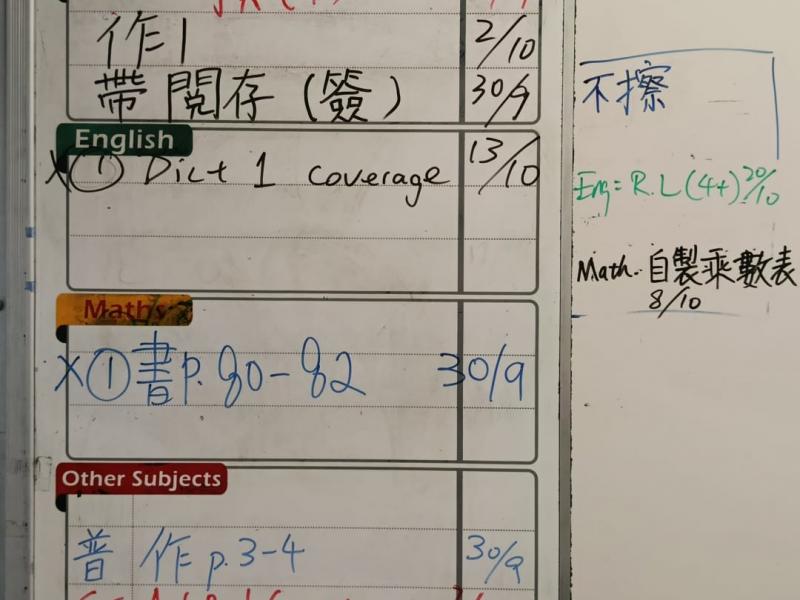 作1 2/10
帶閱存(簽) 30/9
English
X① Dict 1 coverage 13/10
Maths
X①書p.80-82 30/9
Other Subjects
普 作p.3-4 30/9
不擦
Eng= R.L(4+) 20/10
Math. 自製乘數表
8/10